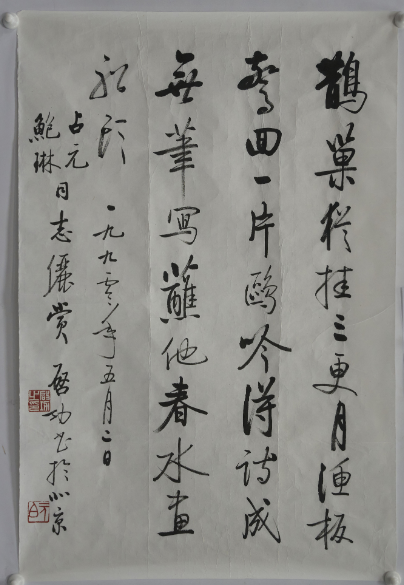 鵲巢猶挂三更月漁板
驚回一片鷗吟得詩成
無筆寫蘸他春水畫
船頭 一九九零年五月二日
占元
鮑琳 同志儷賞 啓功書於北京
元白